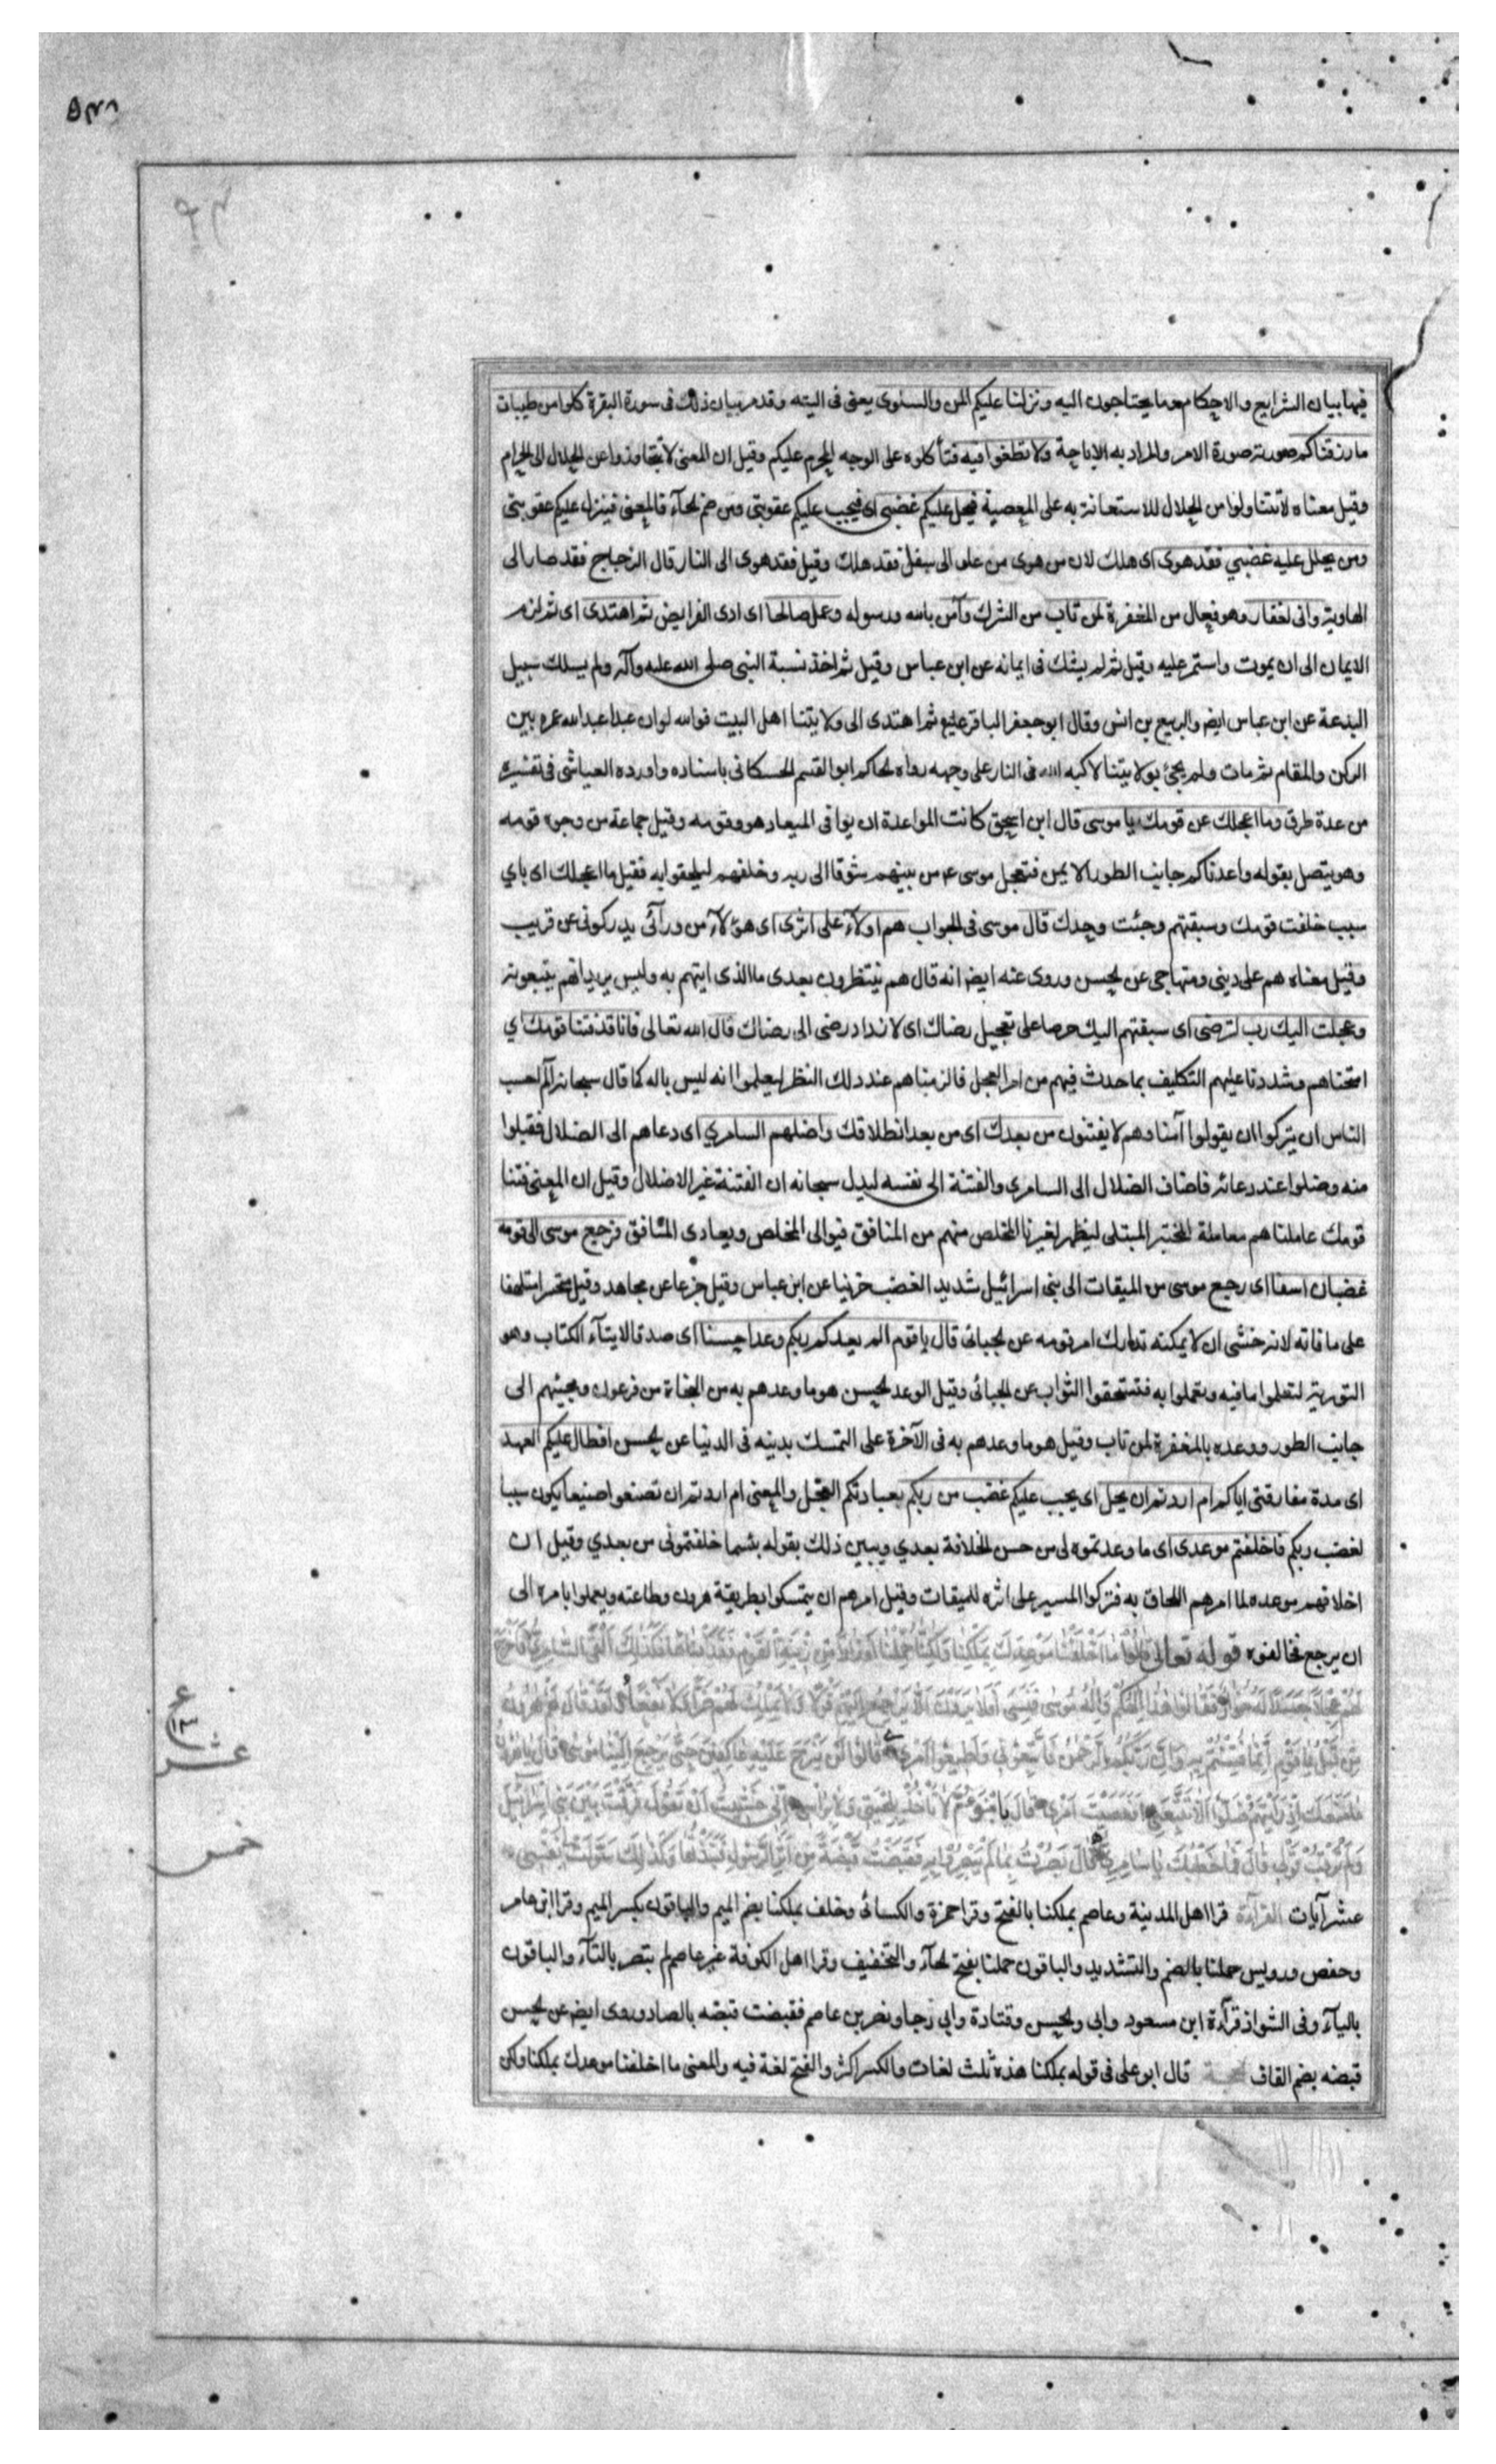 ٥٣٨
فيها بيان الشرايع والاحكام وما يحتاجون اليه ونزلنا عليكم المن والسلوى يعنى فى التيه وقد مر بيان ذلك فى سورة البقرة كلوا من طيبات
ما رزقناكم صورته صورة الامر والمراد به الاباحة ولا تطغوا فيه فتأكلوه على الوجه المحرم عليكم وقيل ان المعنى لا تتجاوزوا عن الحلال الى الحرام
وقيل معناه لا تتناولوا من الحلال للاستعانة به على المعصية فيحل عليكم غضبى اى فيجب عليكم عقوبتى ومن ضم الحآء فالمعنى فينزل عليكم عقوبتى
ومن يحلل عليه غضبي فقد هوى اى هلك لان من هوى من علو الى سفل فقد هلك وقيل فقد هوى الى النار قال الزجاج فقد صار الى
الهاوية وانى لغفار وهو فعال من المغفرة لمن تاب من الشرك وآمن بالله ورسوله وعمل صالحا اى ادى الفرايض ثم اهتدى اى ثم لزم
الايمان الى ان يموت واستمر عليه وقيل ثم لم يشك فى ايمانه عن ابن عباس وقيل ثم اخذ نسبة النبى صلى الله عليه وآله ولم يسلك سبيل
البدعة عن ابن عباس ايض والربيع بن انس وقال ابو جعفر الباقر عليع ثم اهتدى الى ولايتنا اهل البيت فوالله لو ان عبدا عبد الله عمره بين
الركن والمقام ثم مات ولم يجئ بولايتنا لاكبه الله فى النار على وجهه رواه الحاكم ابو القسم الحسكانى باسناده واورده العياشى فى تفسيره
من عدة طرق وما اعجلك عن قومك يا موسى قال ابن اسحق كانت المواعدة ان يوافى الميعاد هو وقومه وقيل جماعة من وجوه قومه
وهو يتصل بقوله واعدناكم جانب الطور الايمن فتعجل موسى ع من بينهم شوقا الى ربه وخلفهم ليلحقوا به فقيل ما اعجلك اى باي
سبب خلفت قومك وسبقتهم وجئت وحدك قال موسى فى الجواب هم اولآء على اثرى اى هؤلآء من ورآئى يدركونى عن قريب
وقيل معناه هم على دينى ومنهاجى عن الحسن وروى عنه ايض انه قال هم ينتظرون بعدى ما الذى ايتهم به وليس يريد انهم يتبعونه
وعجلت اليك رب لترضى اى سبقتهم اليك حرصا على تعجيل رضاك اى لازداد رضى الى رضاك قال الله تعالى فانا قد فتنا قومك اي
امتحناهم وشددنا عليهم التكليف بما حدث فيهم من امر العجل فالزمناهم عند ذلك النظر ليعلموا انه ليس باله كما قال سبحانه الم احسب
الناس ان يتركوا ان يقولوا آمنا وهم لا يفتنون من بعدك اى من بعد انطلاقك واضلهم السامري اى دعاهم الى الضلال فقبلوا
منه وضلوا عند دعائه فاضاف الضلال الى السامرى والفتنة الى نفسه ليدل سبحانه ان الفتنة غير الاضلال وقيل ان المعنى فتنا
قومك عاملناهم معاملة المختبر المبتلى ليظهر لغيرنا المخلص منهم من المنافق فيوالى المخلص ويعادى المنافق فرجع موسى الى قومه
غضبان اسفا اى رجع موسى من الميقات الى بنى اسرائيل شديد الغضب حزينا عن ابن عباس وقيل جزعا عن مجاهد وقيل متحسرا متلهفا
على ما فاته لانه خشى ان لا يمكنه تدارك امر قومه عن الجبائى قال يا قوم الم يعدكم ربكم وعدا حسنا اى صدقا لايتآء الكتاب وهو
التورية لتعلموا ما فيه وتعملوا به فتستحقوا الثواب عن الجبائى وقيل الوعد الحسن هو ما وعدهم به من النجاة من فرعون ومجيئهم الى
جانب الطور ووعده بالمغفرة لمن تاب وقيل هو ما وعدهم به فى الآخرة على التمسك بدينه فى الدنيا عن الحسن افطال عليكم العهد
اى مدة مفارقتى اياكم ام اردتم ان يحل اى يجب عليكم غضب من ربكم بعبادتكم العجل والمعنى ام اردتم ان تصنعوا صنيعا يكون سببا
لغضب ربكم فاخلفتم موعدى اى ما وعدتموه لى من حسن الخلافة بعدي ويبين ذلك بقوله بئسما خلفتمونى من بعدي وقيل ان
اخلافهم موعده لما امرهم اللحاق به فتركوا المسير على اثره للميقات وقيل امرهم ان يتمسكوا بطريقة هرون وطاعته ويعملوا بامره الى
ان يرجع فخالفوه قوله تعالى قَالُوا مَا أَخْلَفْنَا مَوْعِدَكَ بِمَلْكِنَا وَلَكِنَّا حُمِّلْنَا أَوْزَارًا مِنْ زِينَةِ الْقَوْمِ فَقَذَفْنَاهَا فَكَذَلِكَ أَلْقَى السَّامِرِيُّ فَأَخْرَجَ
لَهُمْ عِجْلًا جَسَدًا لَهُ خُوَارٌ فَقَالُوا هَذَا إِلَهُكُمْ وَإِلَهُ مُوسَى فَنَسِيَ أَفَلَا يَرَوْنَ أَلَّا يَرْجِعُ إِلَيْهِمْ قَوْلًا وَلَا يَمْلِكُ لَهُمْ ضَرًّا وَلَا نَفْعًا وَلَقَدْ قَالَ لَهُمْ هَرُونُ
مِنْ قَبْلُ يَا قَوْمِ إِنَّمَا فُتِنْتُمْ بِهِ وَإِنَّ رَبَّكُمُ الرَّحْمَنُ فَاتَّبِعُونِي وَأَطِيعُوا أَمْرِي قَالُوا لَنْ نَبْرَحَ عَلَيْهِ عَاكِفِينَ حَتَّى يَرْجِعَ إِلَيْنَا مُوسَى قَالَ يَا هَرُونُ
مَا مَنَعَكَ إِذْ رَأَيْتَهُمْ ضَلُّوا أَلَّا تَتَّبِعَنِ أَفَعَصَيْتَ أَمْرِي قَالَ يَا ابْنَ أُمَّ لَا تَأْخُذْ بِلِحْيَتِي وَلَا بِرَأْسِي إِنِّي خَشِيتُ أَنْ تَقُولَ فَرَّقْتَ بَيْنَ بَنِي إِسْرَائِيلَ
وَلَمْ تَرْقُبْ قَوْلِي قَالَ فَمَا خَطْبُكَ يَا سَامِرِيُّ قَالَ بَصُرْتُ بِمَا لَمْ يَبْصُرُوا بِهِ فَقَبَضْتُ قَبْضَةً مِنْ أَثَرِ الرَّسُولِ فَنَبَذْتُهَا وَكَذَلِكَ سَوَّلَتْ لِي نَفْسِي
عشر آيات القرآءة قرا اهل المدينة وعاصم بملكنا بالفتح وقرا حمزة والكسائى وخلف بملكنا بضم الميم والباقون بكسر الميم وقرا ابن عامر
وحفص ورويس حملنا بالضم والتشديد والباقون حملنا بفتح الحآء والتخفيف وقرا اهل الكوفة غير عاصم لم تبصر بالتآء والباقون
باليآء وفى الشواذ قرآءة ابن مسعود وابى والحسن وقتادة وابي رجا ونصر بن عاصم فقبصت قبصه بالصاد وروى ايض عن الحسن
قبضه بضم القاف الحجة قال ابو على فى قوله بملكنا هذه ثلث لغات والكسر اكثر والفتح لغة فيه والمعنى ما اخلفنا موعدك بملكنا ولكن
ع
١٣
عشر
خمس